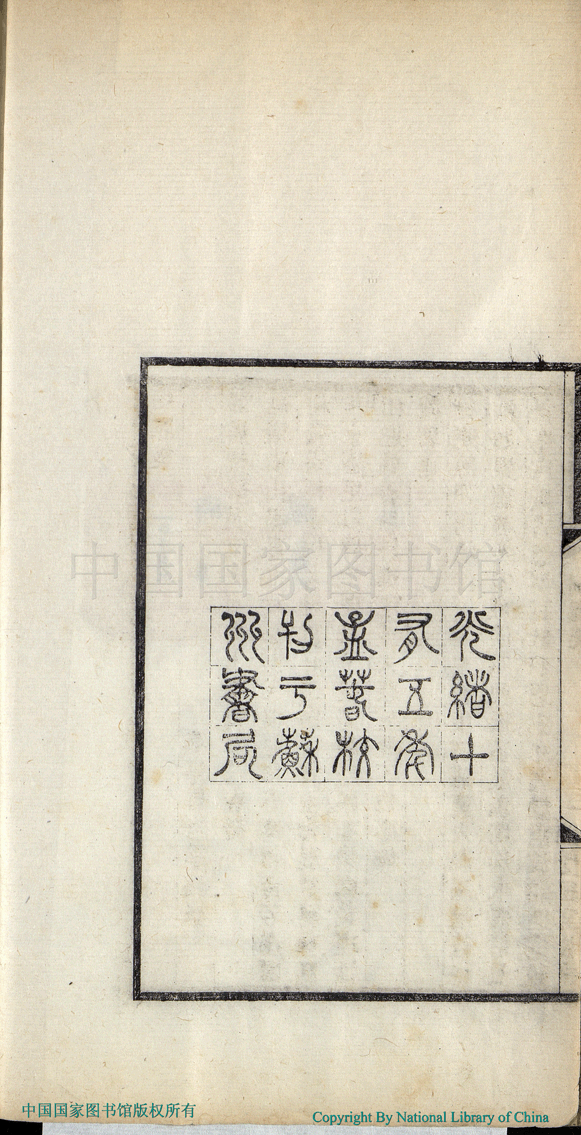 光緒十
有五年
孟春校
刊于蘇
州書局
中国国家图书馆
中国国家图书馆版权所有
Copyright By National Library of China